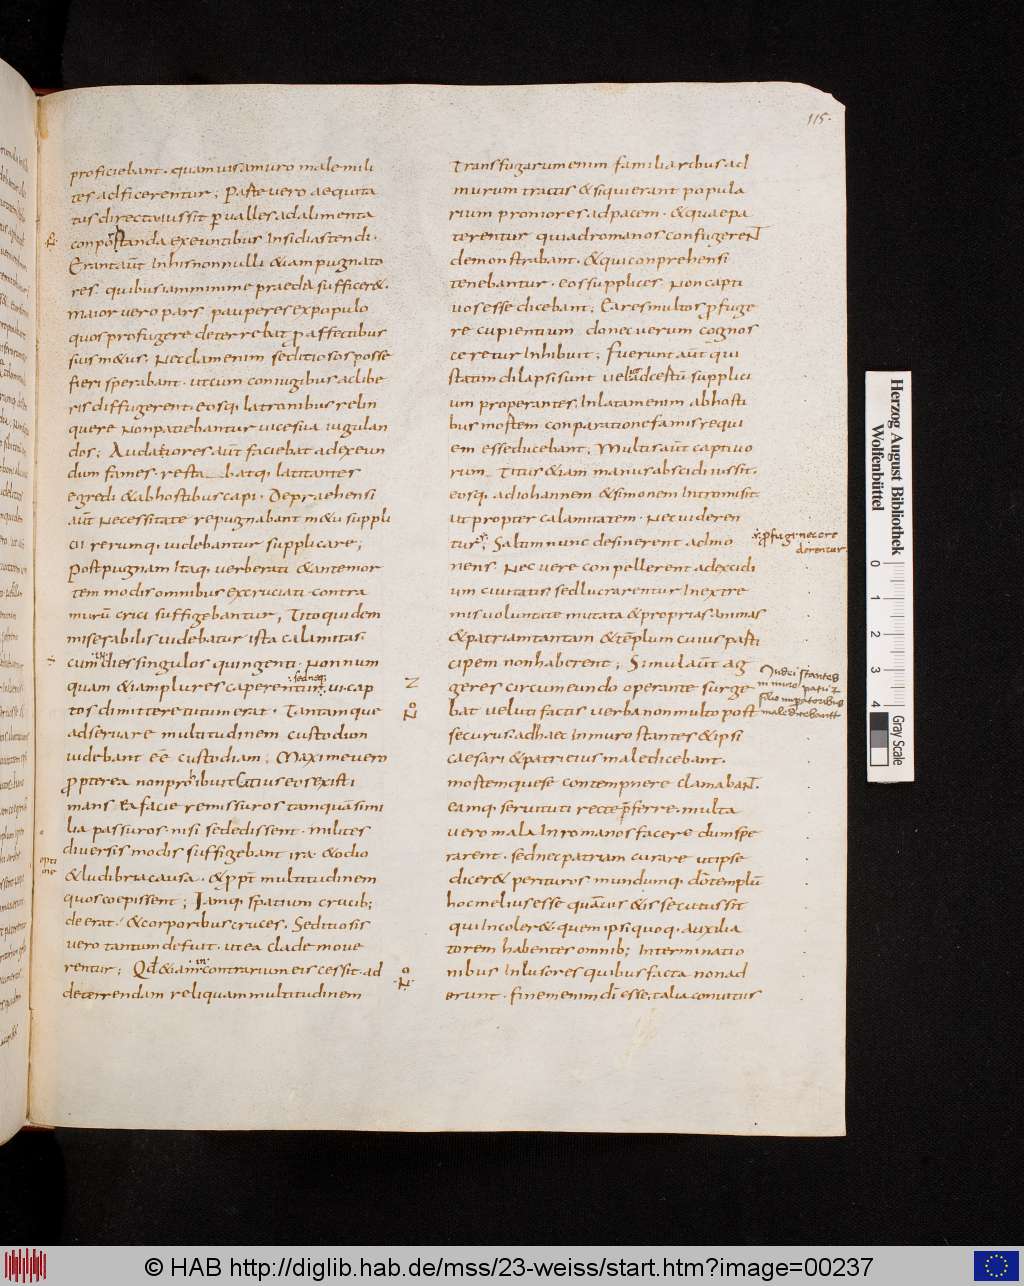 115.
proficiebant. quamuis amuro male mili
tes adficerentur; Parte vero aequita
tus directa iussit p ualles ad alimenta
conportanda exeuntibus Insidias tendi.
Erant aut Inhis nonnulli & iam pugnato
res. quibus iam minime praeda suffic&.
maior vero pars pauperes expopulo
quos profugere deterrebat p affectibus
suis m&us. Nec clam enim seditiosos posse
fieri sperabant. ut cum coniugibus aclibe
ris diffugerent. eosq latronibus relin
quere Non patiebantur uice sua iugulan
dos; Audatiores aut faciebat adexeun
dum fames. resta batq latitantes
egredi & ab hostibus capi. Depraehensi
aut Necessitate repugnabant m&u suppli
cii rerumq. uidebantur supplicare;
Post pugnam Itaq. verberati & antemor
tem modis omnibus excruciati contra
muru crici suffigebantur; Tito quidem
miserabilis uidebatur ista calamitas
cum dies singulos quingenti. Non num
quam & iam plures caperentur. ui cap
tos dimittere tutum erat. Tantamque
adseruare multitudinem custodum
uidebant ee custodiam; Maxime vero
p pterea non prohibuit Citius eos existi
mans Ea facie remissuros tamquam simi
lia passuros. nisi se dedissent. milites
diversis modis suffigebant ira & odio
& ludibria causa. & ppt multitudinem
quos coepissent; Iamq. spatium crucib;
deerat. & corporibus cruces. Seditiosis
vero tantum defuit. ut ea clade moue
rentur; Qd & iam contrarium eis cessit. ad
deterrendam reliquam multitudinem
sed neq;
Transfugarum enim familiaribus ad
murum tractis & siqui erant popula
rium promiores ad pacem. & quae pa
terentur qui ad romanos confugerent
demonstrabant. & qui conprehensi
tenebantur. eos supplices Non capti
uos esse dicebant; Ea res multos p fuge
re cupientium donec uerum cognos
ceretur Inhibuit; Fuerunt aut qui
statim dilapsi sunt uelut ad certu supplici
um properantes, Inlatam enim ab hosti
bus mortem conparatione famis requi
em esse ducebant; Multis aut captiuo
rum Titus & iam manus abscidi iussit.
eosq. ad iohannem & simonem Intromisit.
ut propter calamitatem. Nec uideren
tur; Saltim nunc desinerent admo
nens. Nec vere conpellerent ad excidi
um ciuitatis. sed lucrarentur In extre
mis uoluntate mutata & proprias animas
& patriam tantam & templum cuius parti
cipem non haberent; Simul aut ag
geres circumeundo operante surge
bat veluti factis verba non multo post
securus. ad haec In muro stantes & ipsi
caesari & patri eius maledicebant.
mortemque se contempnere clamabant.
eamq. seruituti recte pferre. multa
vero mala In romanos facere dum spe
rarent. sed nec patriam curare ut ipse
dicer& perituros mundumq. do templu
hoc melius esse quamuis & is secutus sit
qui Incoler& quem ipsi quoq. auxilia
torem habentes omnib; Interminatio
nibus Inlusores quibus facta non ad
erunt. finem enim di esse. talia conuitus
p fugi nec cre
derentur
Iudei stantes
in muro patri &
filio imperatoribus
maledicebant
Herzog August Bibliothek
Wolfenbüttel
0 1 2 3 4
Gray Scale
© HAB http://diglib.hab.de/mss/23-weiss/start.htm?image=00237